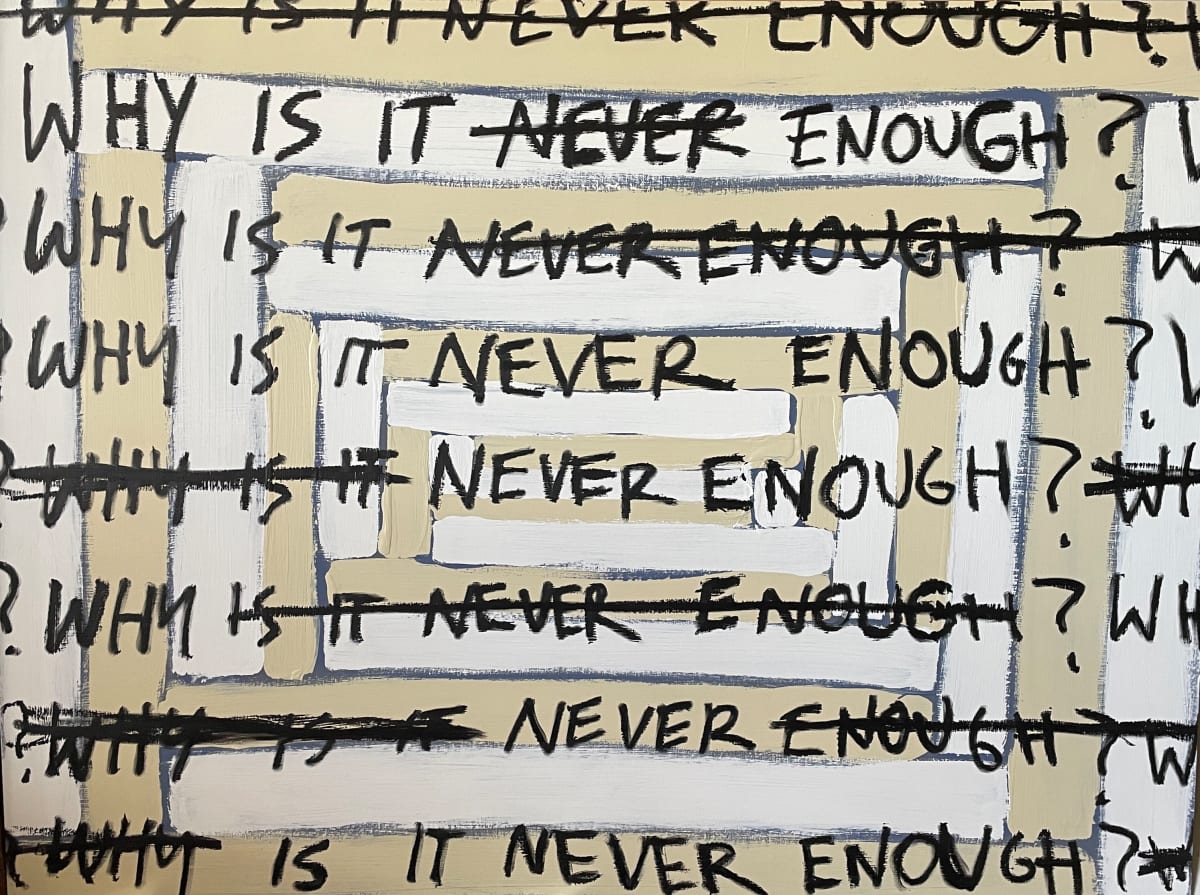 WHY IS IT NEVER ENOUGH ?
WHY IS IT NEVER ENOUGH ?
WHY IS IT NEVER ENOUGH ? W
? WHY IS IT NEVER ENOUGH ?
? WHY IS IT NEVER ENOUGH ? WH
? WHY IS IT NEVER ENOUGH ? WH
? WHY IS IT NEVER ENOUGH ? W
WHY IS IT NEVER ENOUGH ?